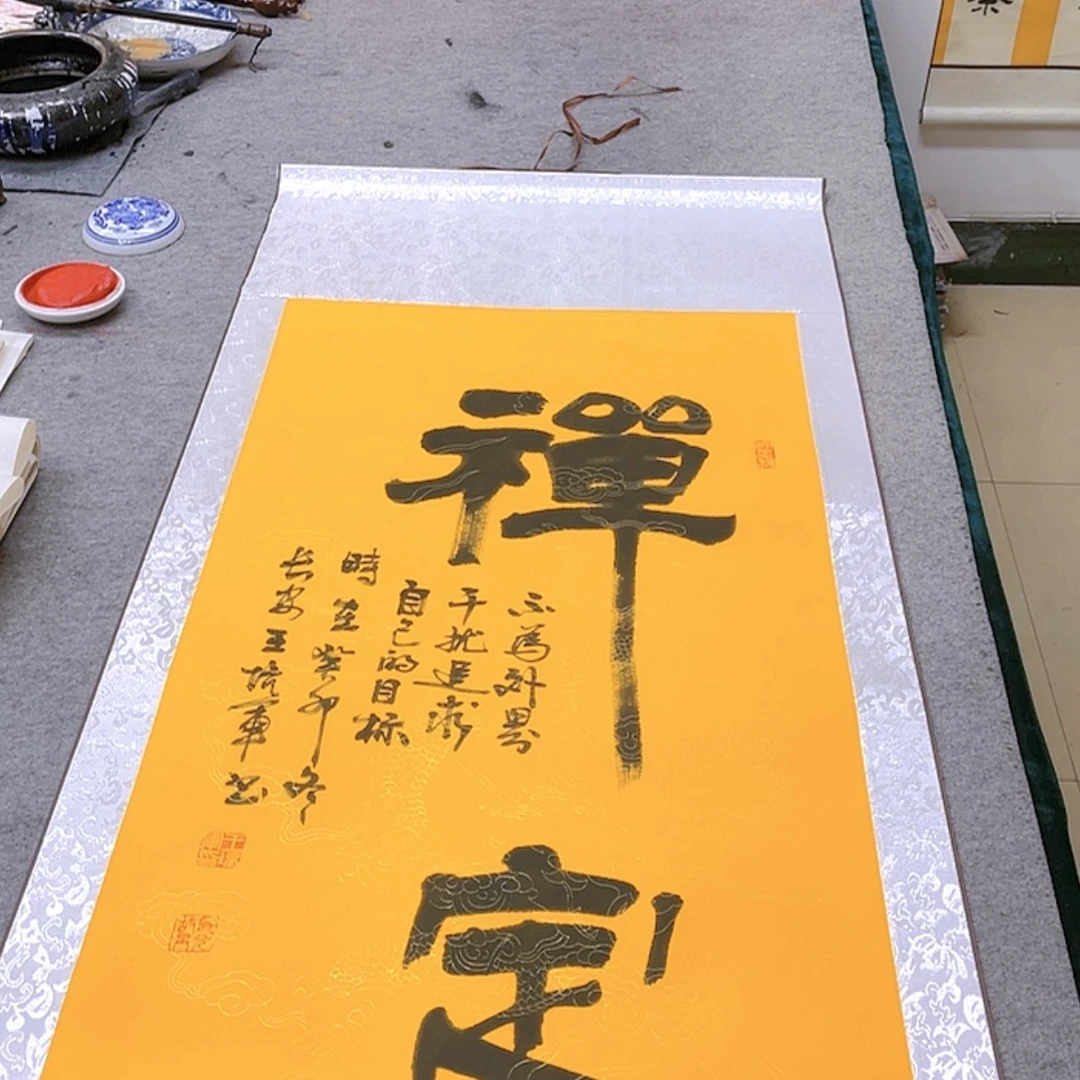 禪定
不為外界
干扰追求
自己的目标
時在癸卯冬
长安王抗軍书